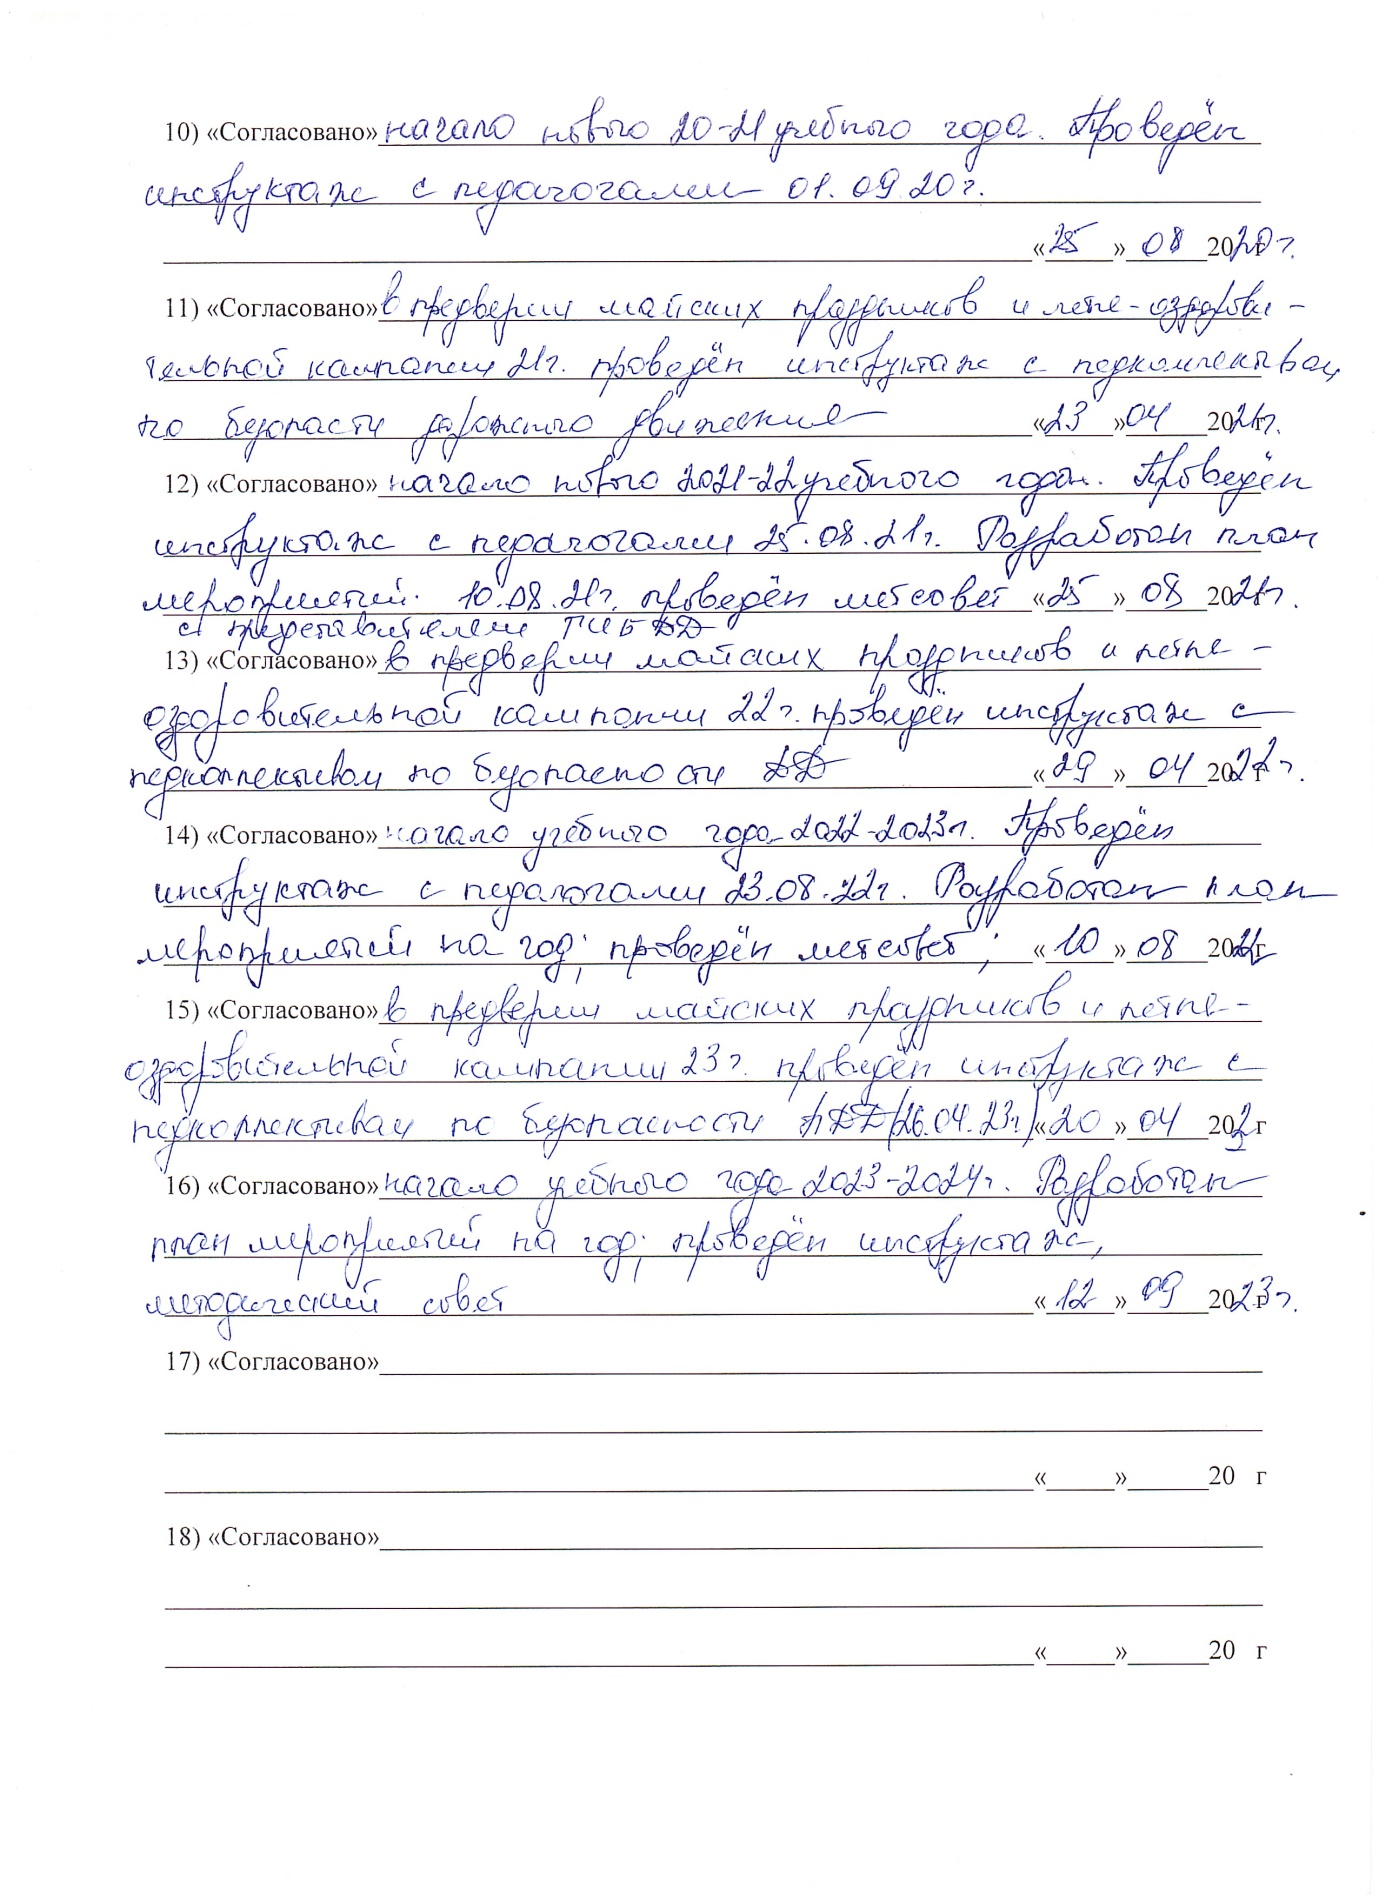 10) «Согласовано» начало нового 20-21 учебного года. Проведён
инструктаж с педагогами 01.09.20г.
«25» 08 2020г.
11) «Согласовано» в предверии майских праздников и летне-оздорови-
тельной кампании 21г. проведён инструктаж с педколлективом
по безопасти дорожного движения «23» 04 2021г.
12) «Согласовано» начало нового 2021-22 учебного года. Проведён
инструктаж с педагогами 25.08.21г. Разработан план
мероприятий. 10.08.21г. проведён метсовет «25» 08 2021г.
с представителем ГИБДД
13) «Согласовано» в предверии майских праздников и летне-
оздоровительной кампании 22г. проведён инструктаж с
педколлективом по безопасности ДД «29» 04 2022г.
14) «Согласовано» начало учебного года 2022-2023г. Проведён
инструктаж с педагогами 23.08.22г. Разработан план
мероприятий на год; проведён метсовет; «10» 08 2022г
15) «Согласовано» в предверии майских праздников и летне-
оздоровительной кампании 23г. проведён инструктаж с
педколлективом по безопасности (26.04.23г.) «20» 04 г
16) «Согласовано» начало учебного года 2023-2024г. Разработан
план мероприятий на год; проведён инструктаж,
методический совет «12» 09 2023г.
17) «Согласовано»
« » 20 г
18) «Согласовано»
« » 20 г